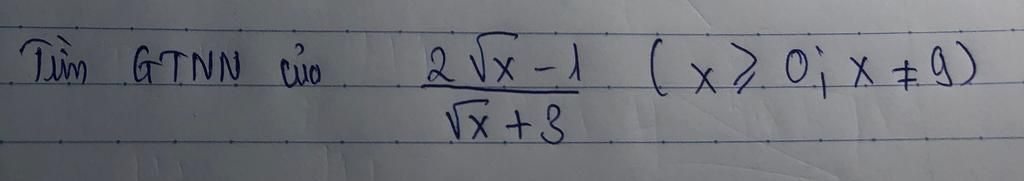 Tìm GTNN của \frac{2\sqrt{x}-1}{\sqrt{x}+3} (x ⩾ 0; x ≠ 9)